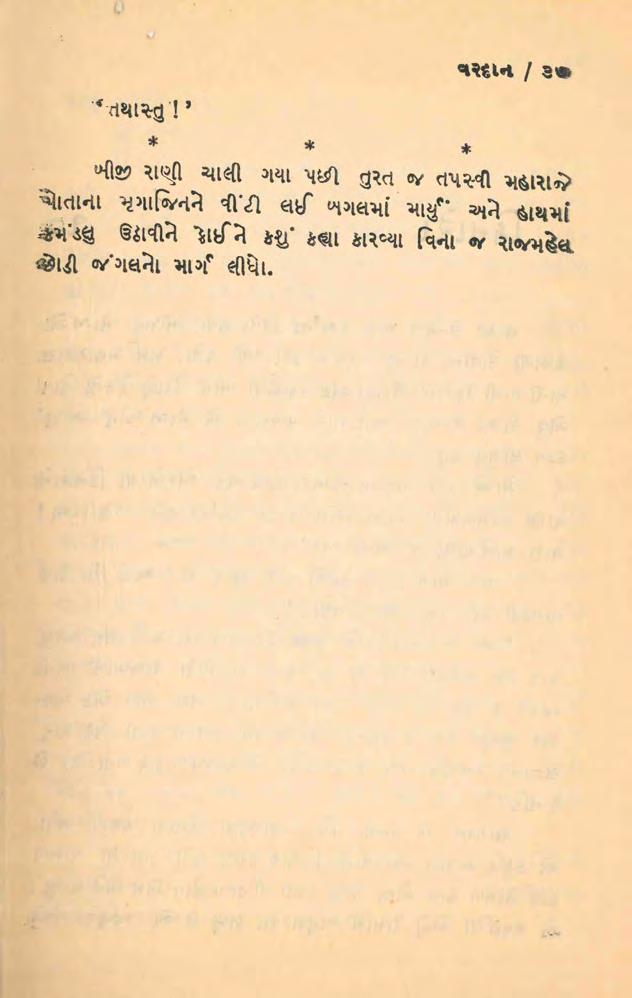 વરદાન / ૩૭
‘તથાસ્તુ !’
* * *
બીજી રાણી ચાલી ગયા પછી તુરત જ તપસ્વી મહારાજે
પોતાના મૃગાજિનને વીંટી લઈ બગલમાં માર્યું અને હાથમાં
કમંડલુ ઉઠાવીને કોઈને કશું કહ્યા કારવ્યા વિના જ રાજમહેલ
છોડી જંગલનો માર્ગ લીધો.